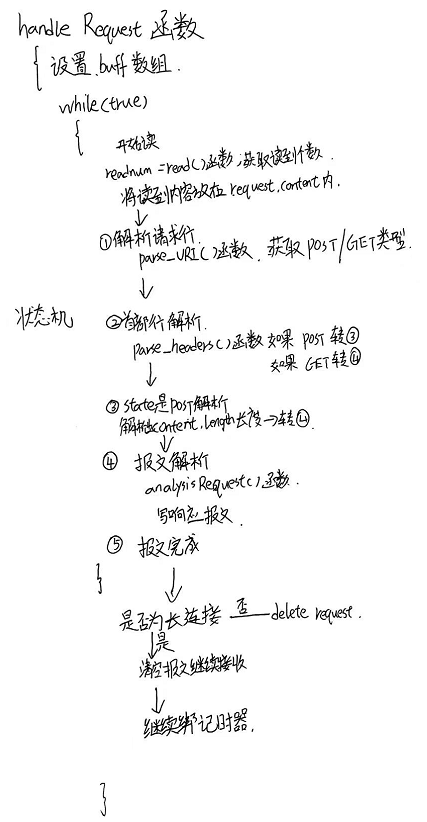 handle Request 函数
{ 设置 buff 数组.
while(true)
{
开始读
readnum = read()函数,获取读到个数.
将读到内容放在 request.content内.
①解析请求行.
parse_URI()函数. 获取 POST/GET类型.
状态机
②首部行解析.
parse_headers()函数 如果 POST 转③
如果 GET转④
③ state是POST解析
解析出content.length长度→转④.
④ 报文解析
analysisRequest()函数.
写响应报文.
⑤ 报文完成
}
是否为长连接 否 delete request.
是
清空报文继续接收
继续绑记时器.
}